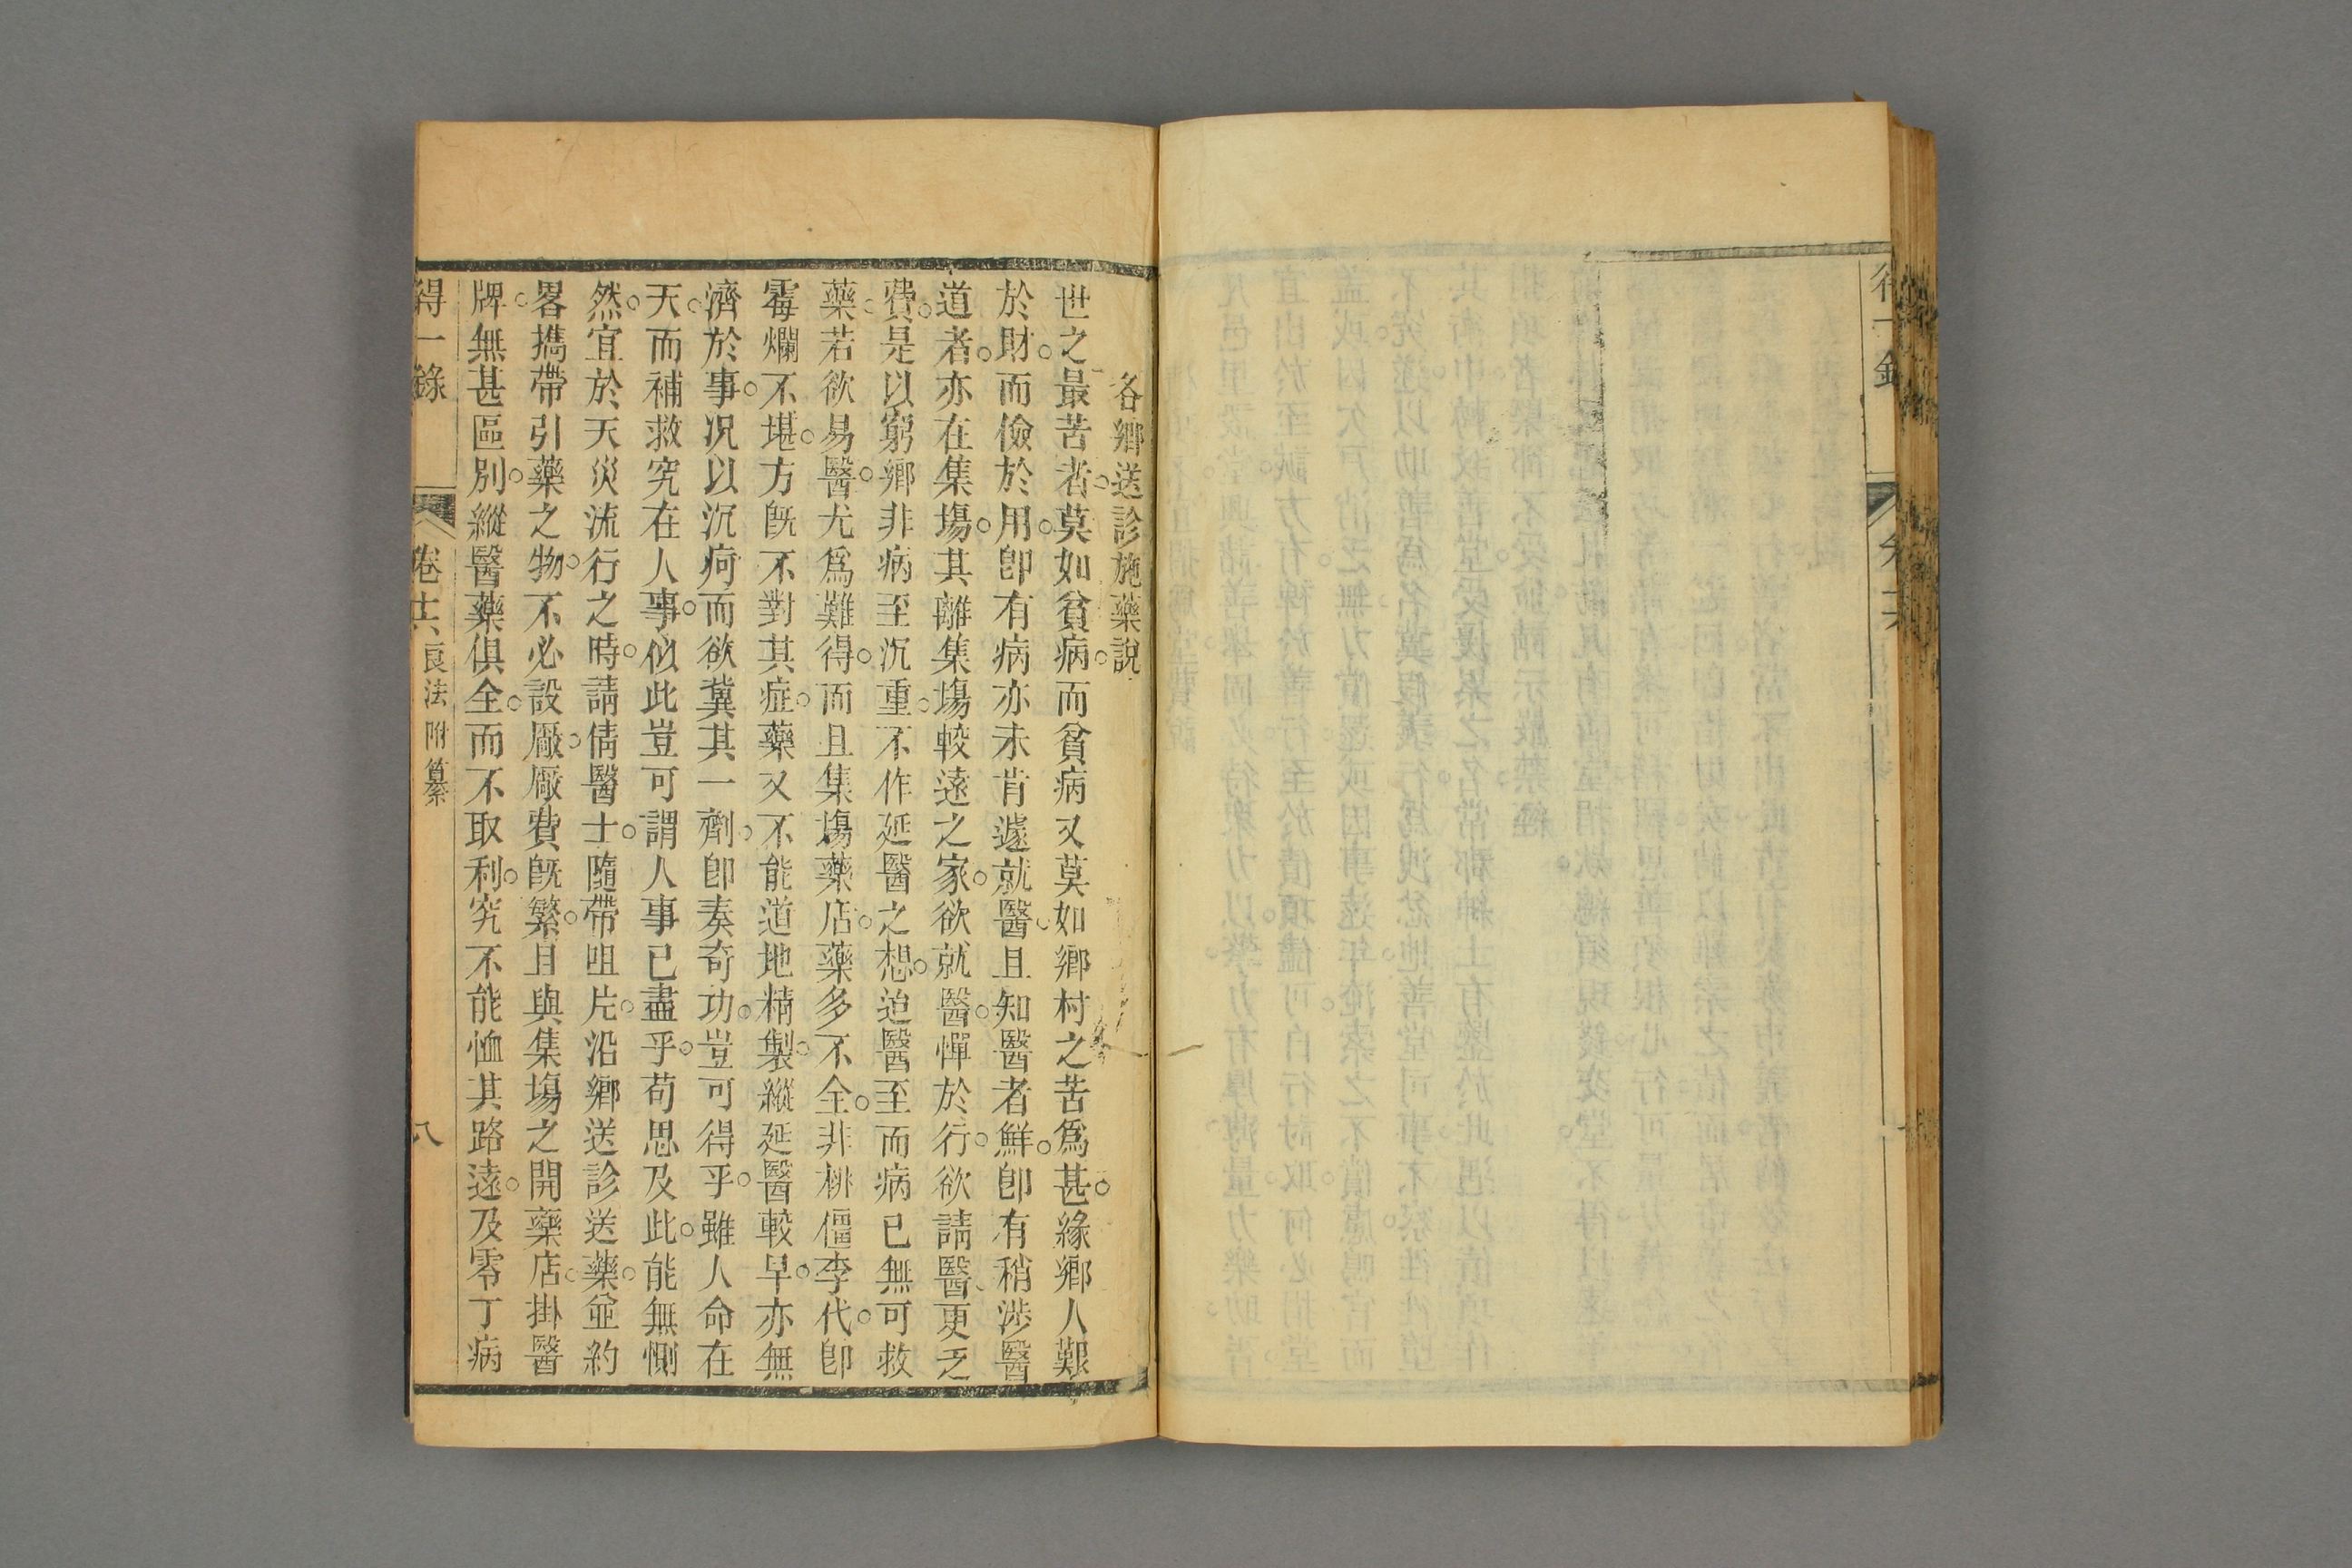 各鄉送診施藥說
世之最苦者。莫如貧病。而貧病又莫如鄉村之苦爲甚。緣鄉人艱
於財。而儉於用。卽有病亦未肯遽就醫。且知醫者鮮。卽有稍涉醫
道者。亦在集塲。其離集塲較遠之家。欲就醫。憚於行。欲請醫。更乏
費。是以窮鄉非病至沉重。不作延醫之想。迫醫至而病已無可救
藥。若欲易醫。尤爲難得。而且集塲藥店。藥多不全。非桃僵李代。卽
霉爛不堪。方旣不對其症。藥又不能道地精製。縱延醫較早。亦無
濟於事。况以沉疴而欲冀其一劑。卽奏奇功。豈可得乎。雖人命在
天。而補救究在人事。似此豈可謂人事已盡乎。苟思及此。能無惻
然。宜於天災流行之時。請倩醫士。隨帶咀片。沿鄉送診送藥。並約
畧攜帶引藥之物。不必設廠。廠費旣繁。且與集塲之開藥店。掛醫
牌。無甚區別。縱醫藥俱全。而不取利。究不能恤其路遠。及零丁病
得一錄 卷十六 良法附纂 八